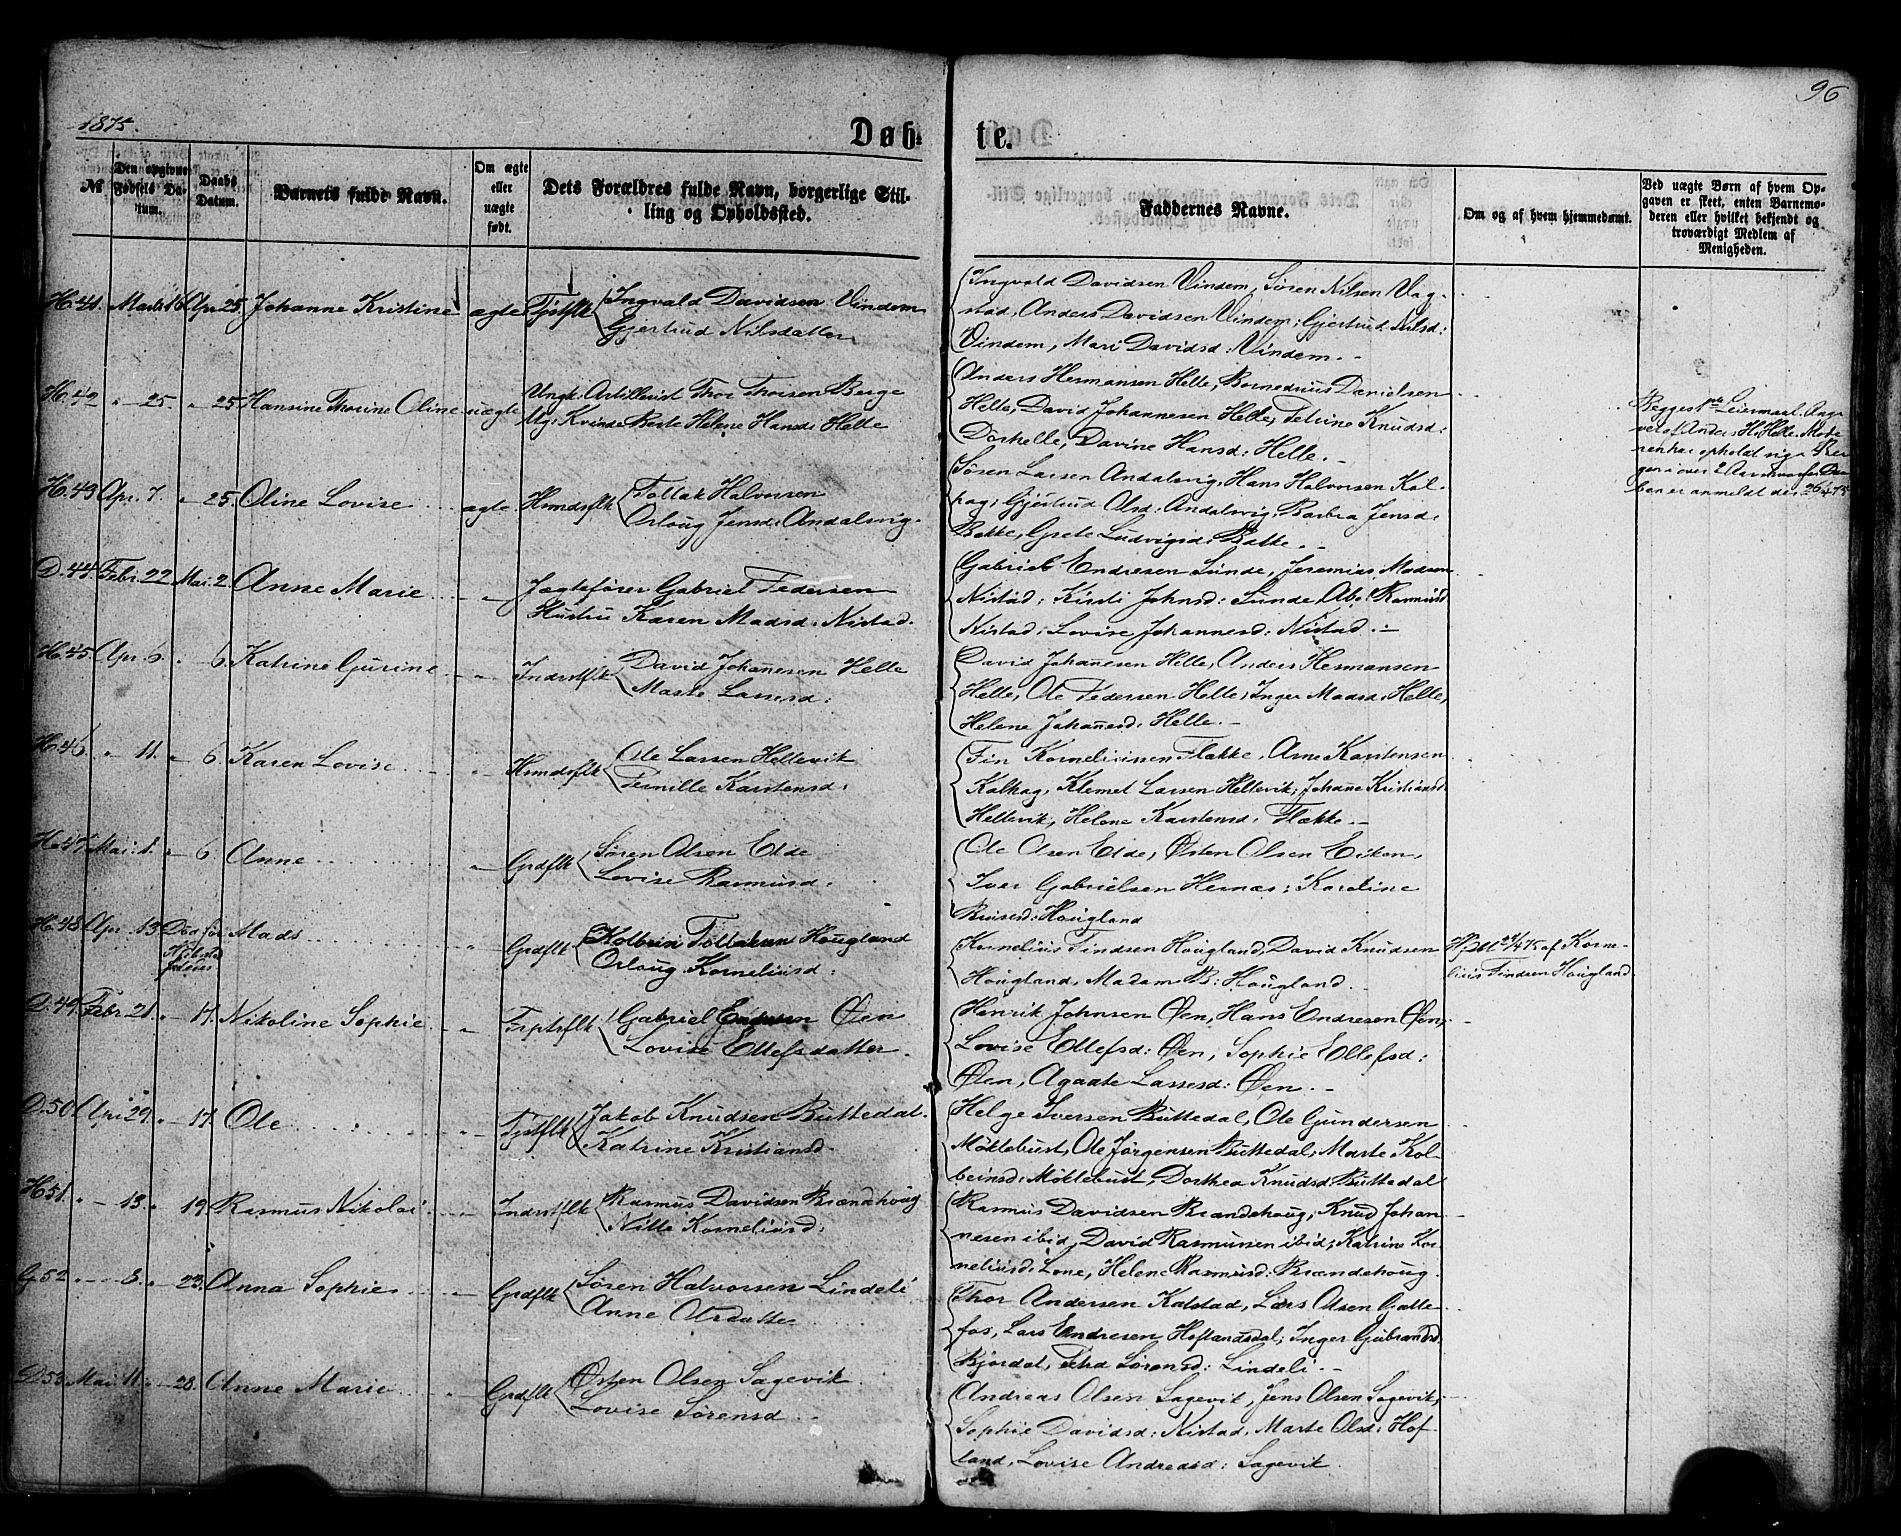 1875.
96
Døbte.
№
Den opgivne Fødsels Datum.
Daabs Datum.
Barnets fulde Navn.
Om ægte eller uægte født.
Dets Forældres fulde Navn, borgerlige Stilling og Opholdssted.
Faddernes Navne.
Om og af hvem hjemmedøbt.
Ved uægte Børn af hvem Opgaven er skeet, enten Barnemoderen eller hvilket bekjendt og troværdigt Medlem af Menigheden.
H. 41. Marts 16 Apr. 25. Johanne Kristine ægte Tjstflk Ingvald Davidsen Vindem
Gjertrud Nilsdatter
Ingvald Davidsen Vindem, Sören Nilsen Vag-
stad, Anders Davidsen Vindem; Gjertrud Nilsd:
Vindem, Mari Davidsd: Vindem. -
H. 42 " 25. " 25 Hansine Thorine Oline uægte Ungk. Artillerist Thor Thorsen Berge
Ug: Kvinde Berte Helene Hansd: Helle
Anders Hermansen Helle, Bornedrius Danielsen
Helle, David Johannesen Helle, Petrine Knudsd:
Dorhelle, Davine Hansd: Helle. -
Begges 1ste Leiermaal. Ang-
vet af Anders H. Helle. Mode-
ren har ophold sig i Ber-
gen i over 2 Aar hvorfor Daa-
ben er anmeldt der 26/4 75
H. 43 Apr. 7. " 25. Oline Lovise ægte Hsmdsflk Tollak Halvorsen
Orloug Jensd: Andalsvig.
Sören Larsen Andalsvig, Hans Halvorsen Kal-
hag; Gjertrud Olsd: Andalsvig, Barbra Jensd:
Bakke, Grete Ludvigsd: Bakke. -
D. 44. Febr. 22. Mai. 2. Anne Marie " Jægtefører Gabriel Pedersen
Hustru Karen Madsd: Nistad.
Gabriel Endresen Sunde, Jeremias Madsen
Nistad; Kirsti Johnsd: Sunde, Abe: Rasmusd
Nistad, Lovise Johannesd: Nistad. -
H. 45 Apr. 6. " 6. Katrine Gurine " Indrstflk David Johanesen Helle
Marte Lassesd:
David Johanesen Helle, Anders Hermansen
Helle, Ole Pedersen Helle; Inger Madsd: Helle,
Helene Johanesd: Helle. -
H. 46. " 11. " 6. Karen Lovise " Hsmdsflk Ole Larsen Hellevik
Pernille Karstensd:
Fin Korneliussen Flække, Arne Karstensen
Kalhag, Klemet Larsen Hellevik; Johane Kristiansd:
Hellevik, Helene Karstensd: Flække. -
H. 47 Mai. 1. " 6. Anne " Grdflk Sören Olsen Elde
Lovise Rasmusd:
Ole Olsen Elde, Østen Olsen Eiken,
Iver Gabrielsen Hernæs; Karoline
Hougland
H. 48 Apr. 13 Død før Mads " Grdflk Kolbein Tollaksen Hougland
Orloug Korneliusd:
Kornelius Findsen Hougland, David Knudsen
Hougland, Madam B: Hougland. -
Hjdt 24/4 75 af Korne-
lius Findsen Hougland
D. 49 Febr 21. " 17. Nikoline Sophie " Gabriel Endresen Øen
Lovise Ellefsdatter.
Henrik Johnsen Øen, Hans Endresen Øen;
Lovise Ellefsd: Øen, Sophie Ellefsd:
Øen, Agaate Lassesd: Øen. -
D. 50 Apr. 29. " 17. Ole " Tjstflk Jakob Knudsen Buttedal.
Katrine Kristiansd
Helge Iversen Buttedal, Ole Gundersen
Möklebust, Ole Jörgensen Buttedal, Marte Kol-
beinsd: Möklebust, Dorthea Knudsd: Buttedal
H 51. " 13. " 19. Rasmus Nikolai " Indrstflk Rasmus Davidsen Brændehoug
Nille Korneliusd:
Rasmus Davidsen Brændehoug, Knud Johan-
nesen ibid, David Rasmussen ibid; Katrine Kor-
neliusd: Lone, Helene Rasmusd: Brændehoug.
G 52 " 8. " 23. Anna Sophie " Grdflk Sören Halvorsen Lindeli
Anne Olsdatter
Thor Andersen Kalstad, Lars Olsen Galte-
fos, Lars Endresen Hoflandsdal; Inger Gubrandsd:
Bjordal, Sörensd: Lindeli. -
D 53 Mai. 11. " 28. Anne Marie " Grdflk Østen Olsen Sagevik
Lovise Sörensd
Andreas Olsen Sagevik, Jens Olsen Sagevik;
Sophie Davidsd: Nistad, Marte Olsd: Hof-
land, Lovise Andreasd: Sagevik.